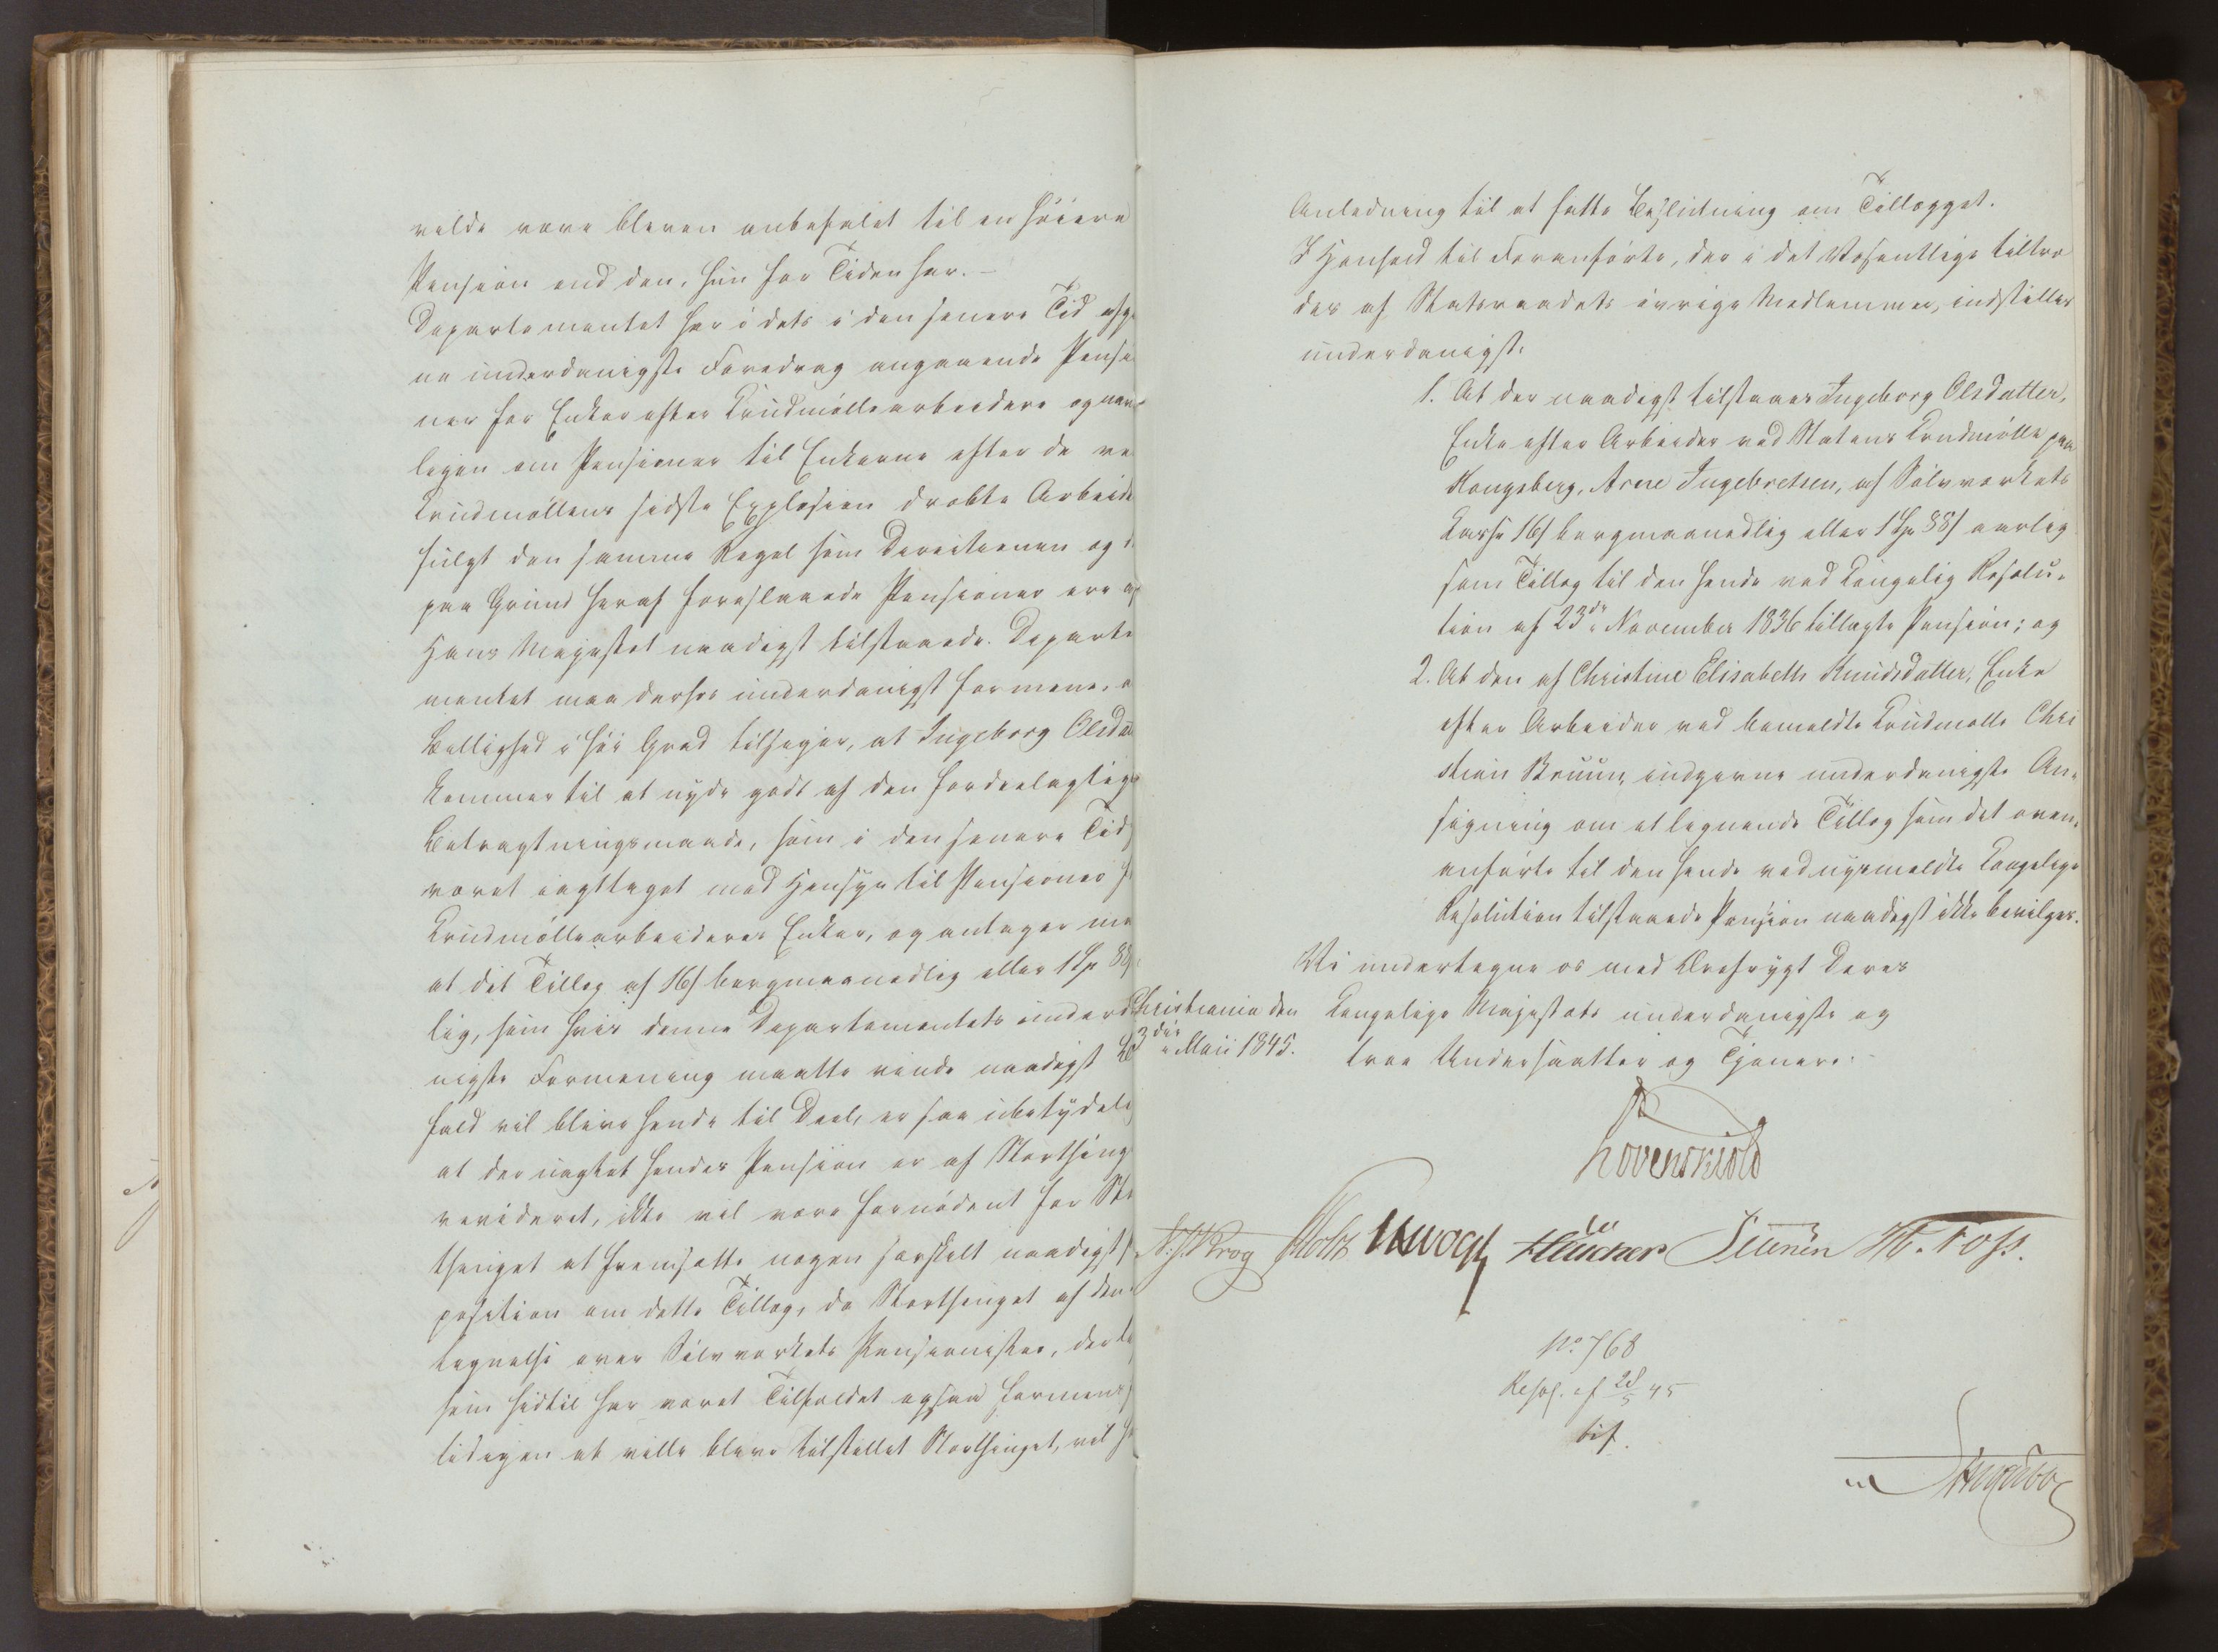 vilde være bleven anbefalet til en høiere
Pension end den, hun for Tiden har. –
Departementet har i dets i den senere Tid afg
ne underdanigste Foredrag angaaende Pensi
ner for Enker efter Krudmøllearbeidere og nav
ligen om Pensioner til Enkerne efter de ve
Krudmøllens sidste Explosion dræbte Arbeide
fulgt den samme Regel som Directionen og d
paa Grund heraf foreslaaede Pensioner ere a
Hans Majestæt naadigst tilstaaede. Departe
mentet maa derfor underdanigst formene, a
Billighed i høi Grad tilsiger, at Ingeborg Olsda
kommer til at nyde godt af den fordeelagtige
Betragtningsmaade, som i den senere Tid
været iagttaget med Hensyn til Pensioner f
Krudmøllearbeideres Enker, og antager ma
at det Tillæg af 16 s bergmaanedlig eller 1 Sp 88 s
lig, som hvis denne Departementets underd
nigste Formening maatte vinde naadigst B
fald vil blive hende til Deel, er saa ubetydeli
at der uagtet hendes Pension er af Storthing
revideret, ikke vil være fornødent for Sto
thinget at fremsætte nogen særskilt naadigst
position om dette Tillæg, da Storthinget af den
tegnelse over Sølvværkets Pensionister, der l
som hidtil har været Tilfældet ogsaa formen
ledigen at ville blive tilstillet Storthinget, vil h
Anledning til at fatte Beslutning om Tillægget.
I Henhold til Foranførte, der i det Væsentlige tiltræ
des af Statsraadets øvrige Medlemmer, indstilles
underdanigst:
1. At der naadigst tilstaaes Ingeborg Olsdatter,
Enke efter Arbeider ved Statens Krudmølle paa
Kongsberg, Arne Ingebretsen, af Sølvværkets
Kasse 16 s bergmaanedlig eller 1 Sp 88 s aarlig
som Tillæg til den hende ved Kongelig Resolu-
tion af 23de November 1836 tillagte Pension; og
2. At den af Christine Elisabeth Knudsdatter, Enke
efter Arbeider ved bemeldte Krudmølle Chri
stian Bruun, indgivne underdanigste An-
søgning om et lignende Tillæg som det oven-
anførte til den hende ved nysmeldte Kongelige
Resolution tilstaaede Pension naadigst ikke bevilges.
Vi undertegne os med Ærefrygt Deres
Christiania den Kongelige Majestæts underdanigste og
3die Maii 1845. troe Undersaatter og Tjenere.
Løvenskiold
N: J: Krog Motz Vogt Sibbern H. Foss.
No. 768
Resol. af 28/5 45
bif.